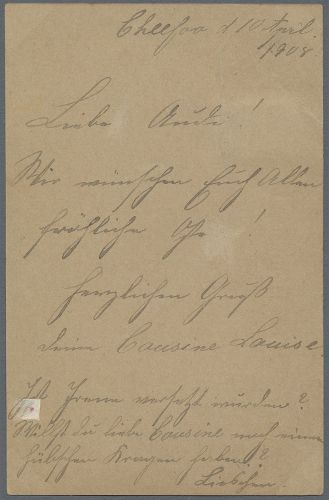 Cheefoo d 10 April.
1908.
Liebe Audi!
Wir wünschen Euch Allen
fröhliche !
Herzlichen Gruß
deine Cousine Louise
Ist Irene versetzt worden?
Willst du liebe Cousine noch einen
hübschen Kragen haben?
Lieschen.